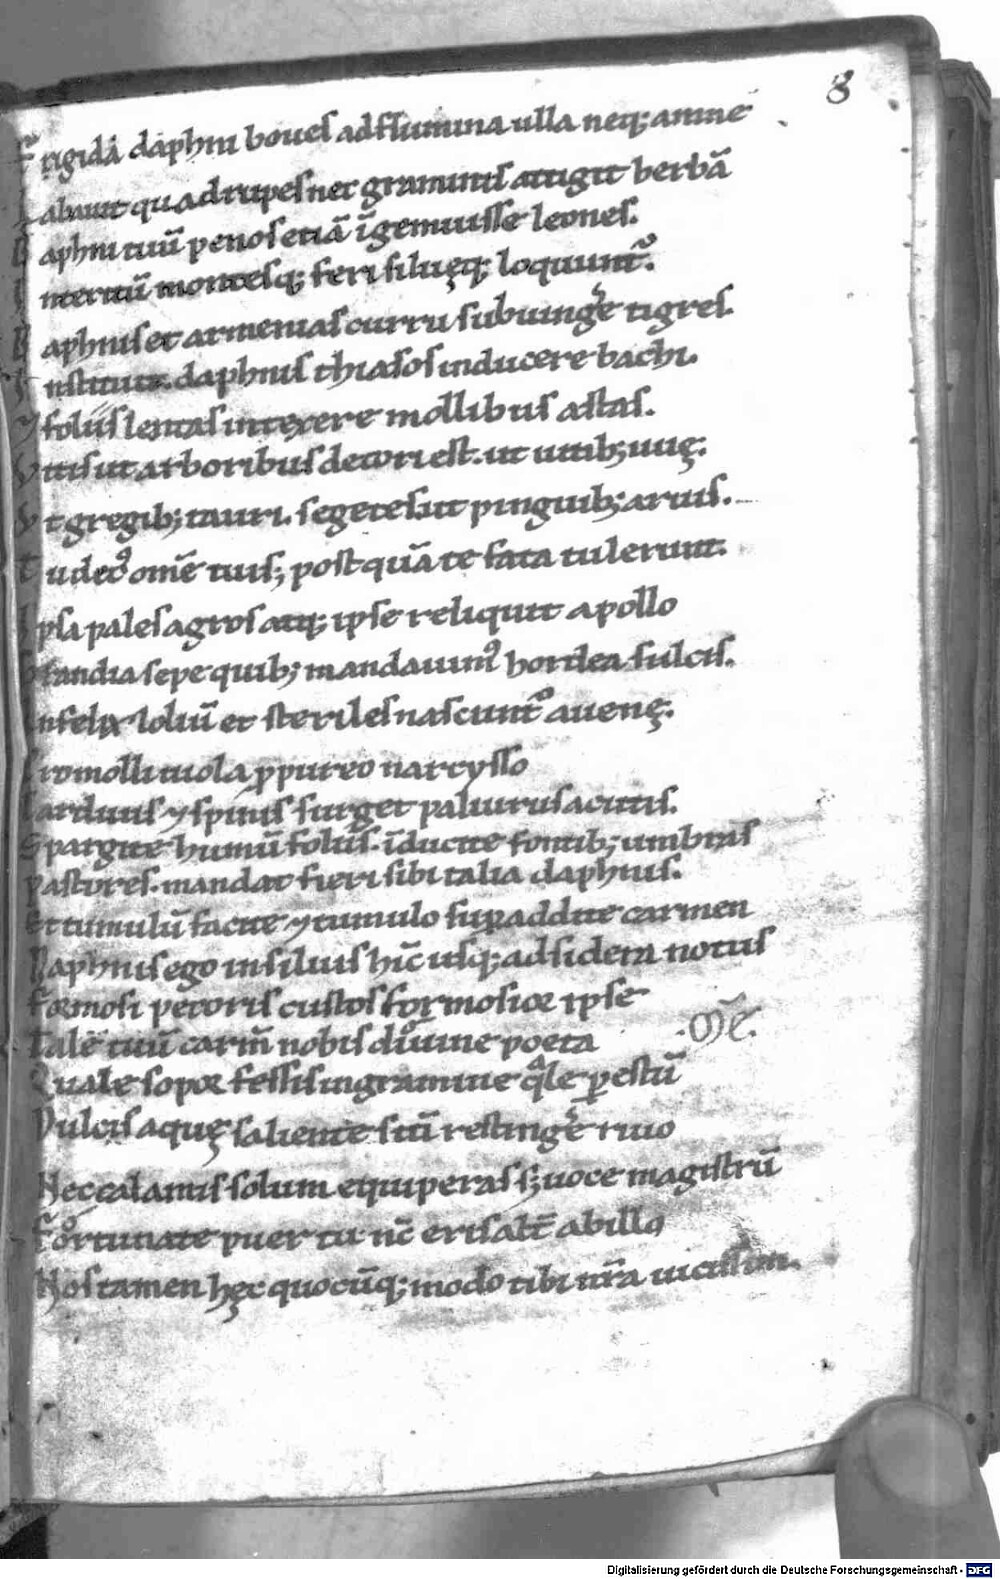 8
Frigidā daphni boues ad flumina ulla neq; amnē
Labauit quadrupes nec graminis attigit herbā
Daphni tuū penos etiā īgemuisse leones.
Interitū montesq; feri siluęq; loquunt᷒.
Daphnis et armenias curru subiungẽ tigres.
Instituit. daphnis thiasos inducere bachi.
⁊ foliis lentas intexere mollibus astas.
Vitis ut arboribus decori est. ut uitib; uuę.
Vt gregib; tauri. segetes ut pinguib; aruis.
Tu dec᷒ omē tuis; postquā te fata tulerunt.
Ipsa pales agros atq; ipse reliquit apollo
Grandia sepe quib; mandauim᷒ hordea sulcis.
Infelix loliū et steriles nascunt᷒ auenę.
Pro molli uiola ꝓpureo narcysso
Carduus ⁊ spinis surget paliurus acutis.
Spargite humū foliis. īducite fontib; umbras
Pastores. mandat fieri sibi talia daphnis.
Et tumulū facite ⁊ tumulo sup̱addite carmen
Daphnis ego in siluis hīc usq; ad sidera notus
Formosi pecoris custos formosior ipse
Tale tuū carm̄ nobis diuine poeta
.M̄E.
Quale sopor fessis in gramine q̄le ꝑ estū
Dulcis aquę saliente sitī restingẽ riuo
Nec calamis solum equiperas s; uoce magistrū
Fortunate puer tu nc̄ eris alt̄ ab illo
Nos tamen hęc quocūq; modo tibi nr̄a uicissim.
Digitalisierung gefördert durch die Deutsche Forschungsgemeinschaft - DFG